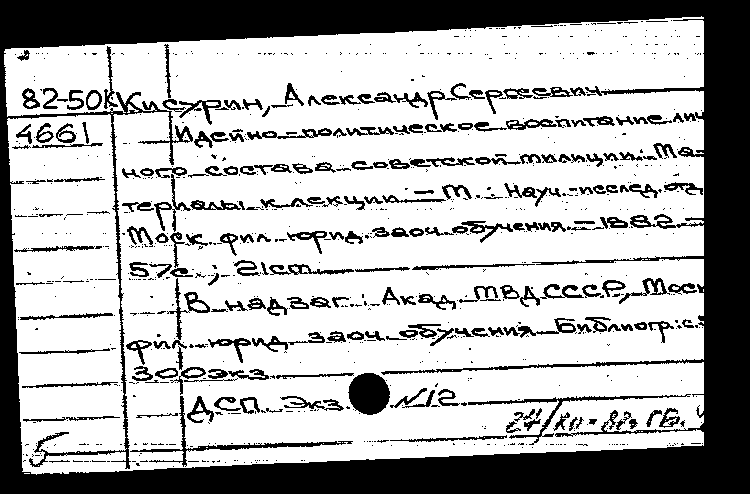 82-50К Кисурин, Александр Сергеевич
4661 Идейно-политическое воспитание лич
ного состава советской милиции: Ма-
териалы к лекции. — М.: Науч.-исслед. отд.
Моск. фил. юрид. заоч. обучения. — 1982. —
57с.; 21см.
В надзаг.: Акад. МВД СССР, Моск.
фил. юрид. заоч. обучения. Библиогр.: с.
300экз.
ДСП. Экз. №12
5